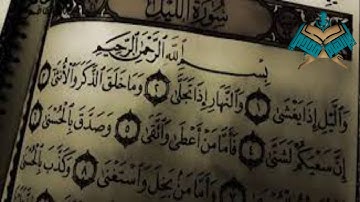 سُورَةُ اللَّيْلِ
بِسْمِ اللَّهِ الرَّحْمَٰنِ الرَّحِيمِ
وَاللَّيْلِ إِذَا يَغْشَىٰ ١ وَالنَّهَارِ إِذَا تَجَلَّىٰ ٢ وَمَا خَلَقَ الذَّكَرَ وَالْأُنْثَىٰ ٣
إِنَّ سَعْيَكُمْ لَشَتَّىٰ ٤ فَأَمَّا مَنْ أَعْطَىٰ وَاتَّقَىٰ ٥ وَصَدَّقَ بِالْحُسْنَىٰ ٦
وَأَمَّا مَنْ بَخِلَ وَاسْتَغْنَىٰ ٨ وَكَذَّبَ بِالْحُسْنَىٰ